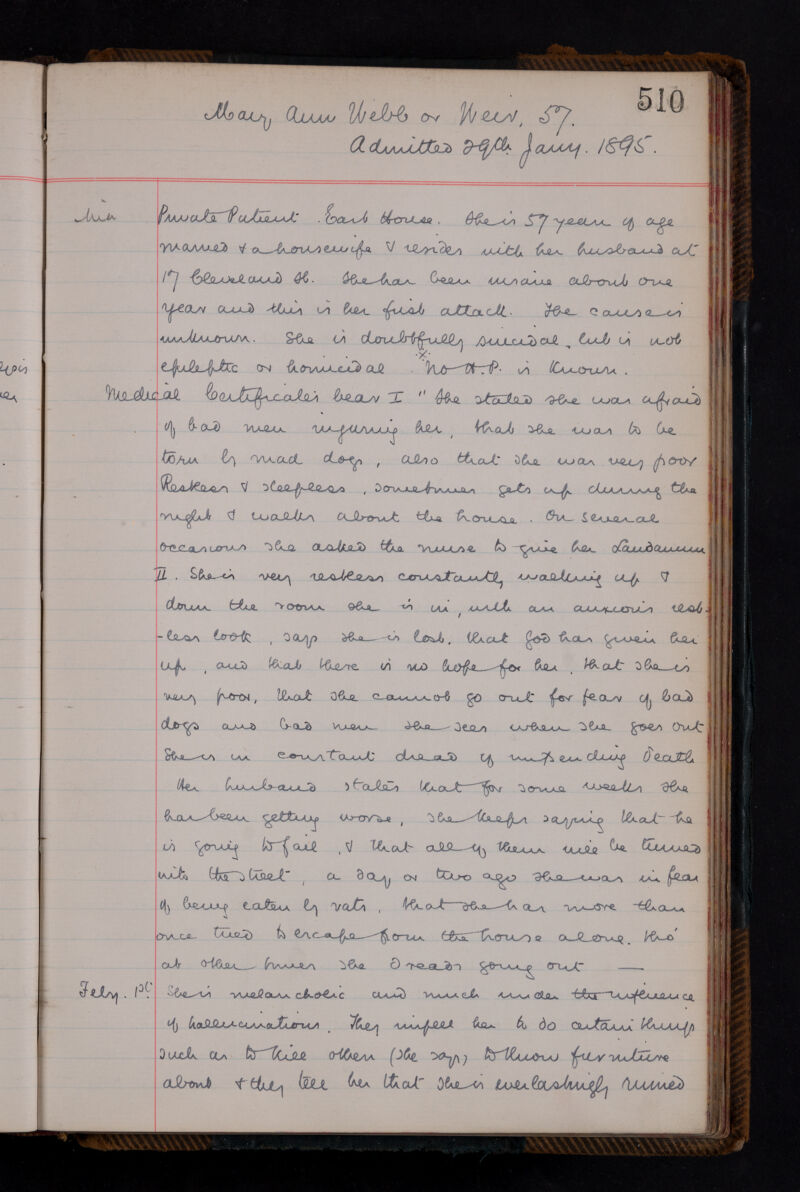 510
Mary Ann Webb or Weir, 57.
Admitted 29th Jany. 1895.
Private Patient. East House. She is 57 years of age
married & a housewife & resides with her husband at
17 Cleveland St. She has been insane about one
year and this is her first attack. The cause is
unknown. She is doubtfully suicidal, but is not
epileptic or homicidal. No H.P. is known.
Medical Certificates bear I "She stated she was afraid
of bad men injuring her, that she was to be
torn by mad dogs, also that she was very poor
Restless & sleepless, sometimes gets up during the
night & walks about the house. On several
occasions she asked the nurse to give her Laudanum
II. She is very restless constantly walking up &
down the room she is in, with an anxious rest-
-less look, says she is lost, that God has given her
up, and that there is no hope for her, that she is
very poor, that she cannot go out for fear of bad
dogs and bad men she sees when she goes out
She is in constant dread of impending death
Her husband states that for some weeks she
has been getting worse, she keeps saying that he
is going to fail, & that all of them will be turned
into the street, a day or two ago she was in fear
of being eaten by rats, that she has more than
once tried to escape from the house alone, tho'
at other times she dreads going out —
Feby. 1st. She is melancholic and much under the influence
of hallucinations. They impell her to do certain things
such as to kill others (she says) to throw furniture
about & they tell her that she is everlastingly ruined